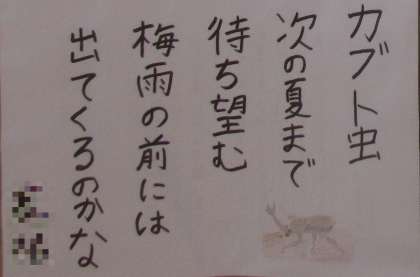 カブト虫
次の夏まで
待ち望む
梅雨の前には
出てくるのかな